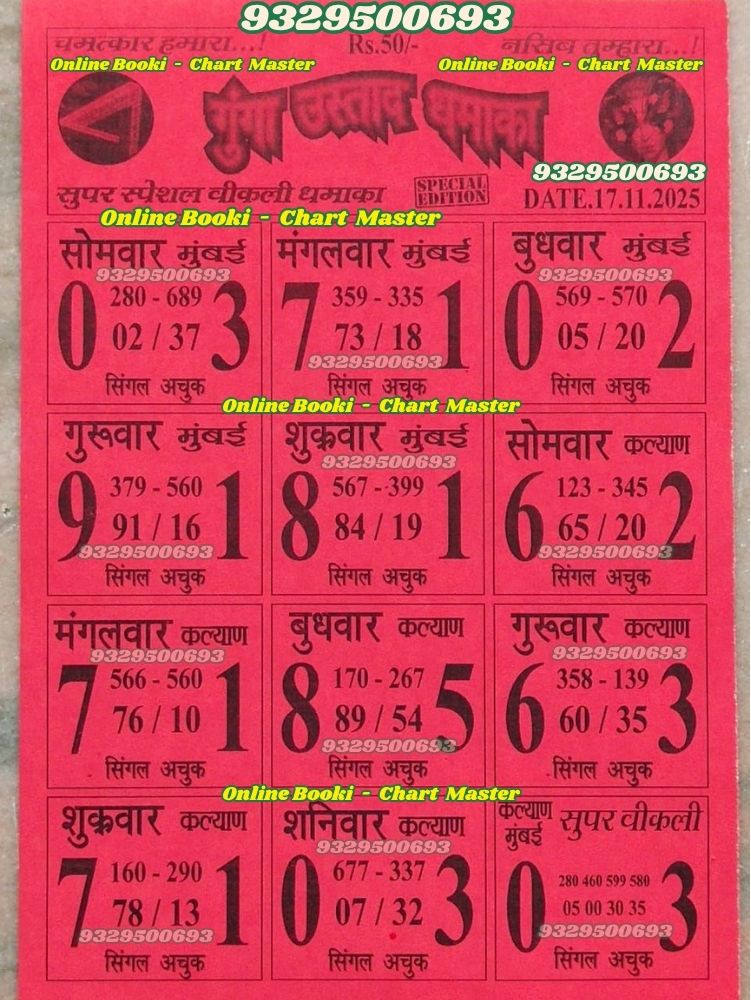 9329500693
चमत्कार हमारा...! Rs.50/- नसिब तुम्हारा...!
Online Booki - Chart Master Online Booki - Chart Master
गुंगा उस्ताद धमाका
9329500693
सुपर स्पेशल वीकली धमाका SPECIAL EDITION DATE.17.11.2025
Online Booki - Chart Master
सोमवार मुंबई
9329500693
280 - 689
0 3
02 / 37
सिंगल अचुक
मंगलवार मुंबई
359 - 335
7 1
73 / 18
9329500693
सिंगल अचुक
बुधवार मुंबई
9329500693
569 - 570
0 2
05 / 20
सिंगल अचुक
Online Booki - Chart Master
गुरूवार मुंबई
379 - 560
9 1
91 / 16
9329500693
सिंगल अचुक
शुक्रवार मुंबई
9329500693
567 - 399
8 1
84 / 19
सिंगल अचुक
सोमवार कल्याण
123 - 345
6 2
65 / 20
9329500693
सिंगल अचुक
मंगलवार कल्याण
9329500693
566 - 560
7 1
76 / 10
सिंगल अचुक
बुधवार कल्याण
170 - 267
8 5
89 / 54
9329500693
सिंगल अचुक
गुरूवार कल्याण
9329500693
358 - 139
6 3
60 / 35
सिंगल अचुक
Online Booki - Chart Master
शुक्रवार कल्याण
160 - 290
7 1
78 / 13
9329500693
सिंगल अचुक
शनिवार कल्याण
9329500693
677 - 337
0 3
07 / 32
सिंगल अचुक
कल्याण मुंबई सुपर वीकली
280 460 599 580
0 3
05 00 30 35
9329500693
सिंगल अचुक